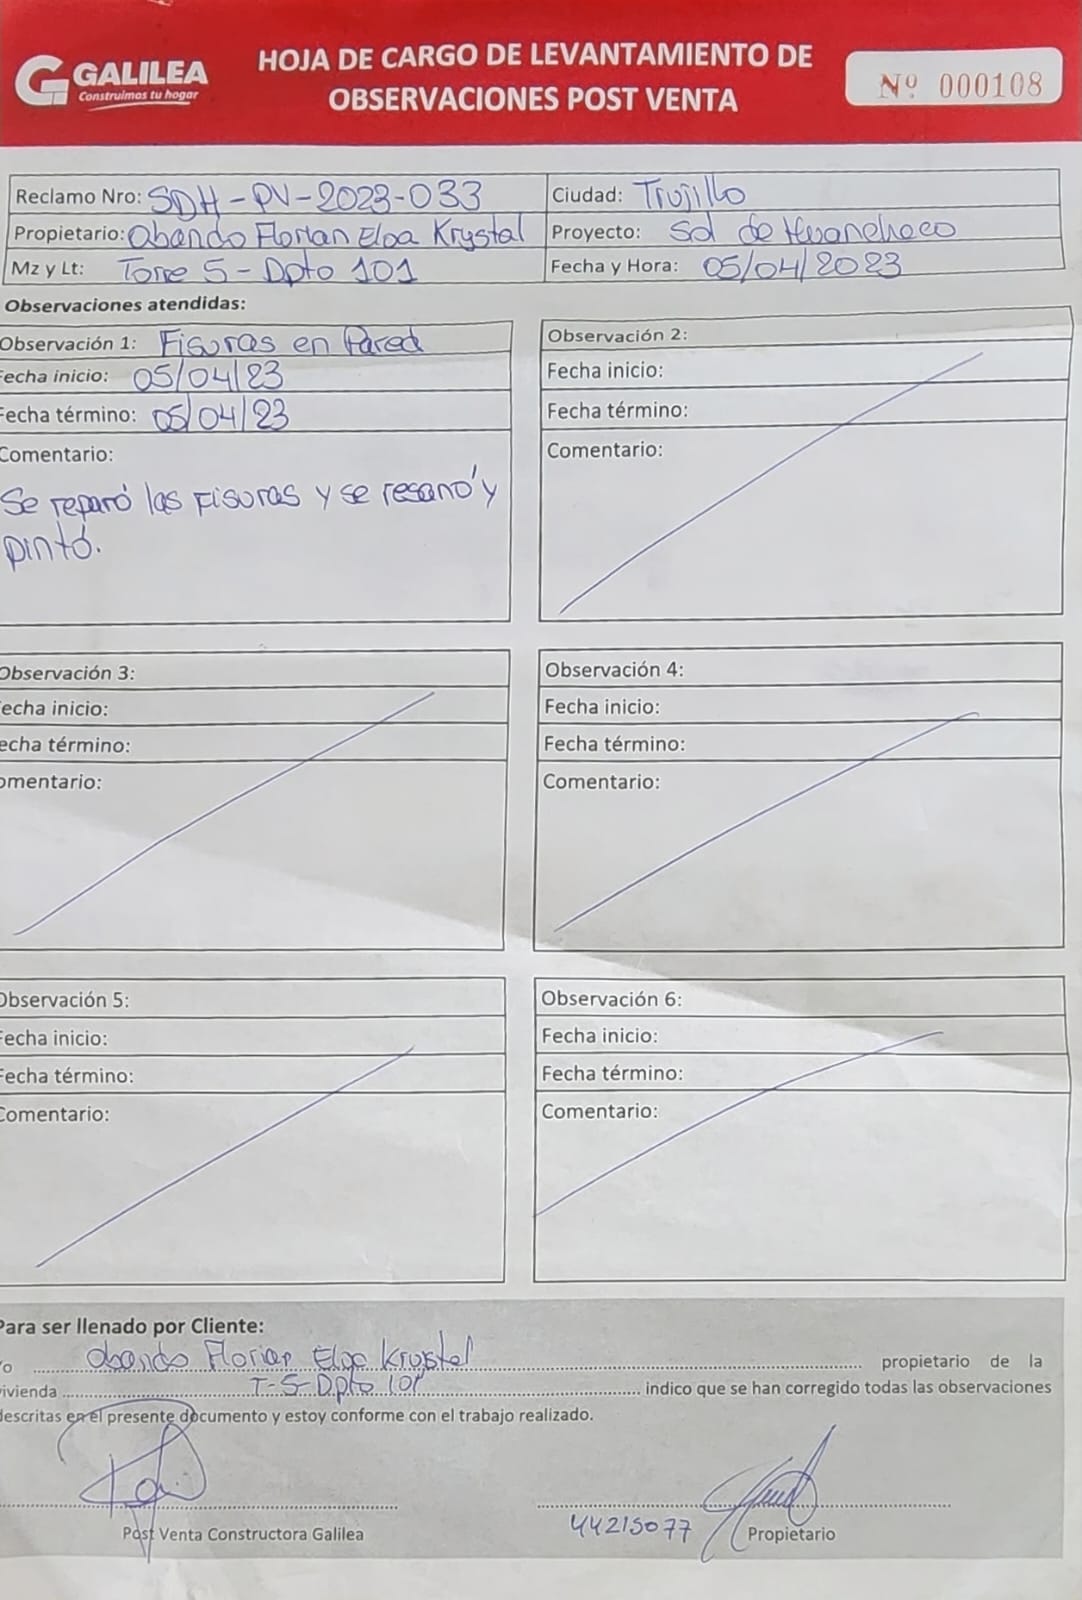 GALILEA
Construimos tu hogar
HOJA DE CARGO DE LEVANTAMIENTO DE
OBSERVACIONES POST VENTA
Nº 000108
Reclamo Nro: SDH-PV-2023-033
Ciudad: Trujillo
Propietario: Obando Florian Eloa Krystal
Proyecto: Sol de Huanchaco
Mz y Lt: Torre 5 - Dpto 101
Fecha y Hora: 05/04/2023
Observaciones atendidas:
Observación 1: Fisuras en Pared
Fecha inicio: 05/04/23
Fecha término: 05/04/23
Comentario:
Se reparó las Fisuras y se resanó y
pintó.
Observación 2:
Fecha inicio:
Fecha término:
Comentario:
Observación 3:
Fecha inicio:
Fecha término:
Comentario:
Observación 4:
Fecha inicio:
Fecha término:
Comentario:
Observación 5:
Fecha inicio:
Fecha término:
Comentario:
Observación 6:
Fecha inicio:
Fecha término:
Comentario:
Para ser llenado por Cliente:
Yo Obando Florian Eloa Krystal propietario de la
vivienda T-5-Dpto 101 indico que se han corregido todas las observaciones
descritas en el presente documento y estoy conforme con el trabajo realizado.
Post Venta Constructora Galilea
44215077 Propietario